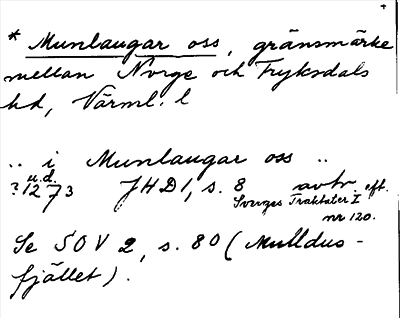 * Munlaugar oss, gränsmärke
mellan Norge och Fryksdals
hd, Värml. l
.. i Munlaugar oss ..
u.d.
? 1273 JHD 1, s. 8 avtr. eft.
Sveriges Traktater I
nr 120.
Se SOV 2, s. 80 (Mulldus-
fjället).